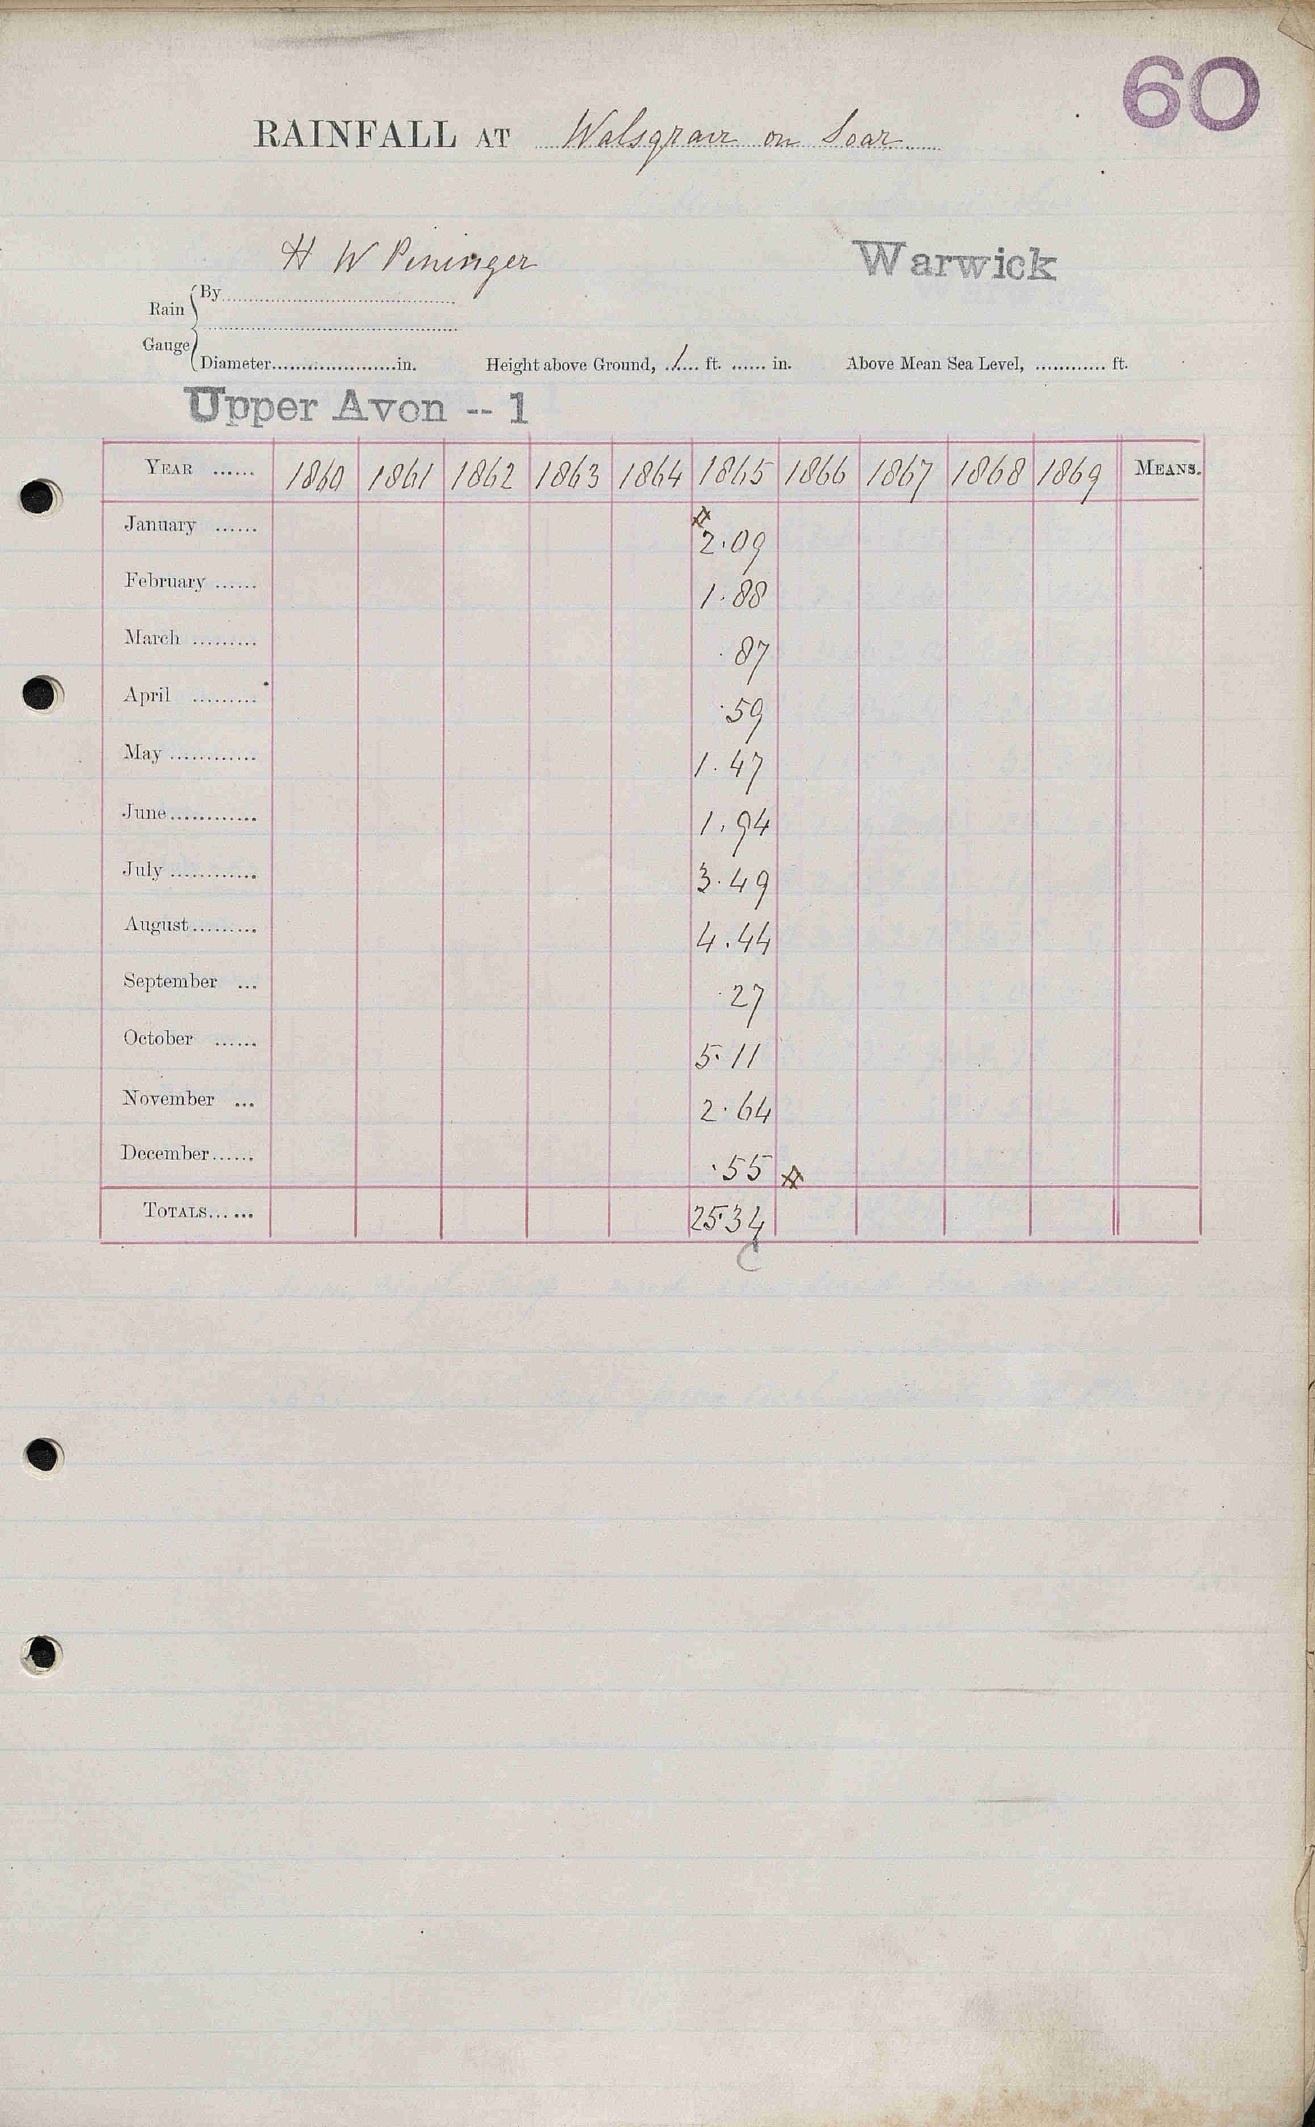 60
RAINFALL AT Walsgrave on Soar
H W Pininger
Warwick
Rain Gauge { By
Diameter in. Height above Ground, 1 ft. in. Above Mean Sea Level, ft.
Upper Avon -- 1
YEAR 1860 1861 1862 1863 1864 1865 1866 1867 1868 1869 MEANS.
January 2.09
February 1.88
March .87
April .59
May 1.47
June 1.94
July 3.49
August 4.44
September .27
October 5.11
November 2.64
December .55
TOTALS 25.34
C